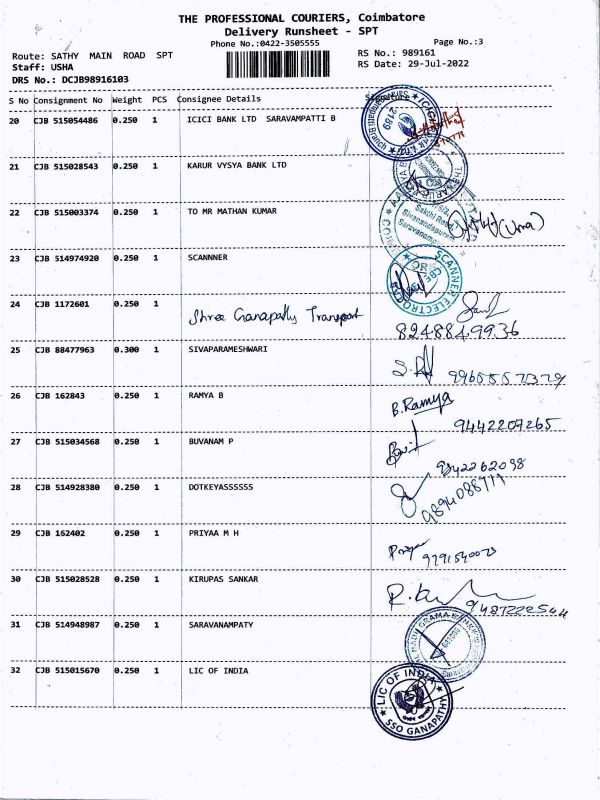 THE PROFESSIONAL COURIERS, Coimbatore
Delivery Runsheet - SPT
Phone No.:0422-3505555 Page No.:3
Route: SATHY MAIN ROAD SPT RS No.: 989161
Staff: USHA RS Date: 29-Jul-2022
DRS No.: DCJB98916103
S No Consignment No Weight PCS Consignee Details Signature
20 CJB 515054486 0.250 1 ICICI BANK LTD SARAVAMPATTI B
21 CJB 515028543 0.250 1 KARUR VYSYA BANK LTD
22 CJB 515003374 0.250 1 TO MR MATHAN KUMAR (Uma)
23 CJB 514974920 0.250 1 SCANNNER
24 CJB 1172601 0.250 1 Shree Ganapathy Transport
8248849936
25 CJB 88477963 0.300 1 SIVAPARAMESHWARI
26 CJB 162843 0.250 1 RAMYA B B.Ramya
9442207265
27 CJB 515034568 0.250 1 BUVANAM P
9842262098
28 CJB 514928380 0.250 1 DOTKEYASSSSSS
29 CJB 162402 0.250 1 PRIYAA M H
30 CJB 515028528 0.250 1 KIRUPAS SANKAR
31 CJB 514948987 0.250 1 SARAVANAMPATY
32 CJB 515015670 0.250 1 LIC OF INDIA
LIC OF INDIA
SSO GANAPATHY